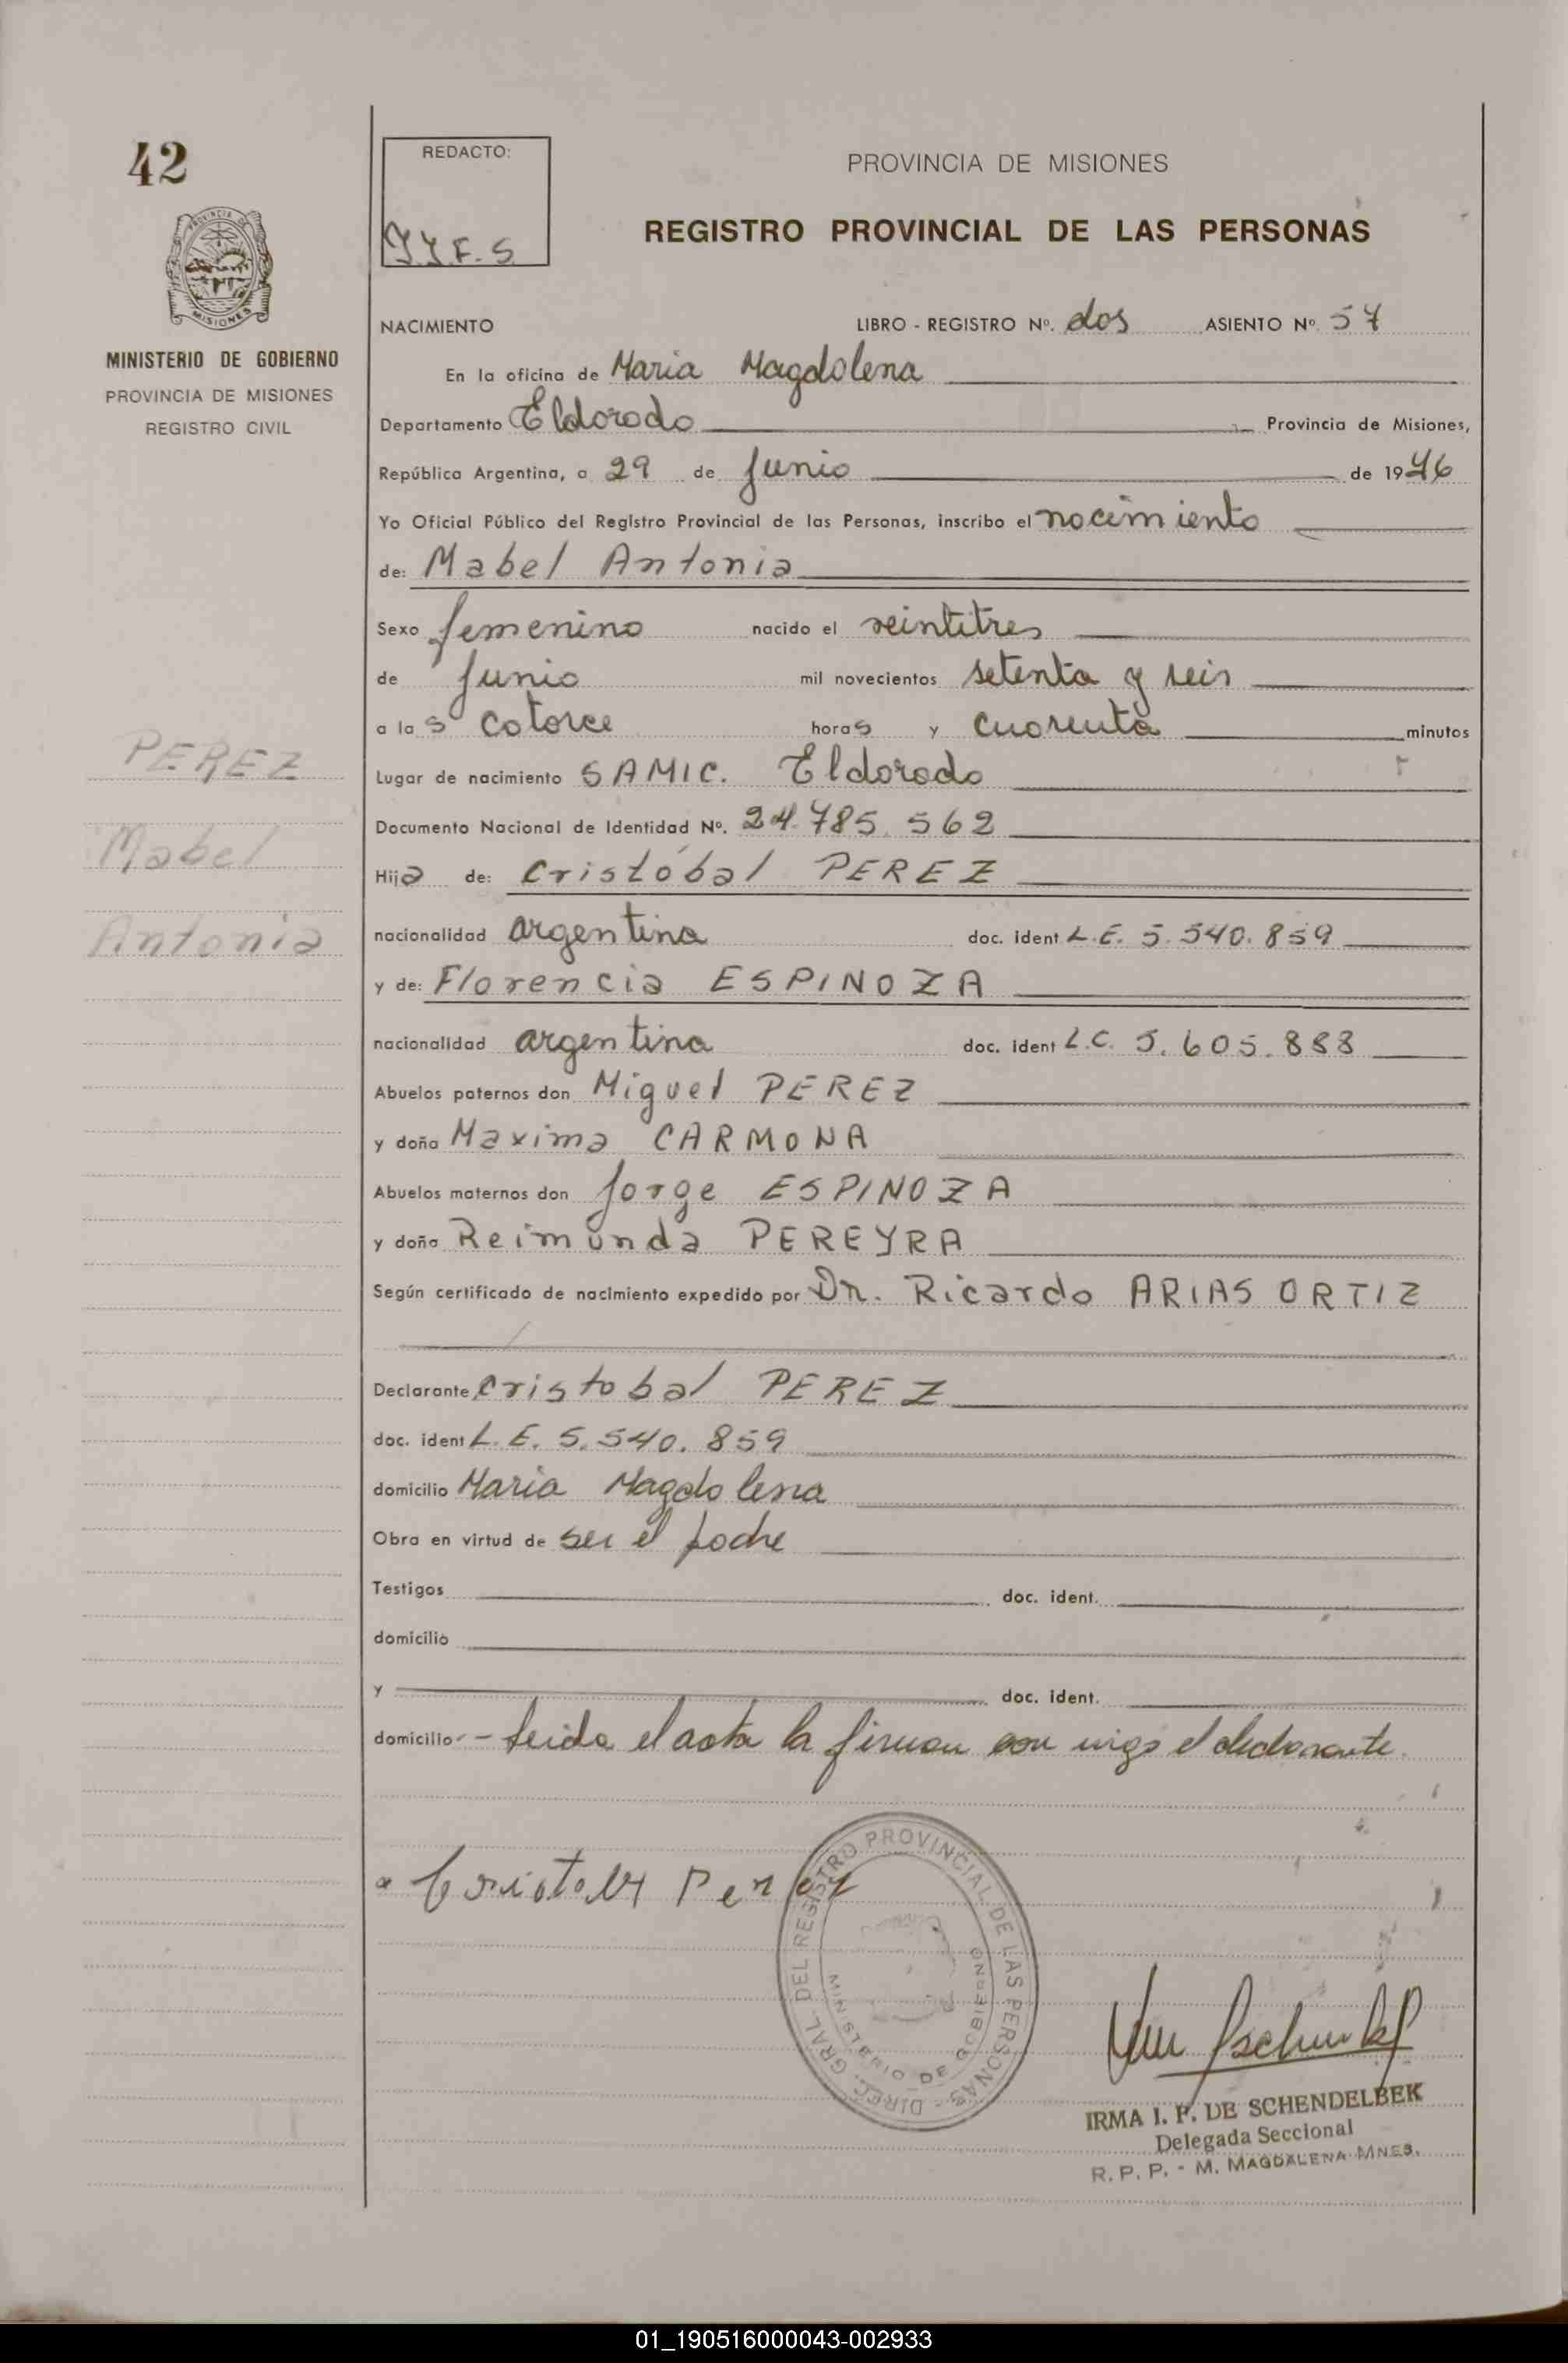 42
REDACTO:
J.J.F.S.
PROVINCIA DE MISIONES
REGISTRO PROVINCIAL DE LAS PERSONAS
MINISTERIO DE GOBIERNO
PROVINCIA DE MISIONES
REGISTRO CIVIL
NACIMIENTO LIBRO - REGISTRO Nº. dos ASIENTO Nº. 57
En la oficina de Maria Magdalena
Departamento Eldorado Provincia de Misiones,
República Argentina, a 29 de Junio de 1976
Yo Oficial Público del Registro Provincial de las Personas, inscribo el nacimiento
de: Mabel Antonia
Sexo femenino nacido el veintitres
de Junio mil novecientos setenta y seis
a las catorce horas y cuarenta minutos
PEREZ
Mabel
Antonia
Lugar de nacimiento SAMIC. Eldorado
Documento Nacional de Identidad Nº. 24.785.562
Hija de: Cristóbal PEREZ
nacionalidad argentina doc. ident L.E. 5.540.859
y de: Florencia ESPINOZA
nacionalidad argentina doc. ident L.C. 5.605.888
Abuelos paternos don Miguel PEREZ
y doña Maxima CARMONA
Abuelos maternos don Jorge ESPINOZA
y doña Reimunda PEREYRA
Según certificado de nacimiento expedido por Dr. Ricardo ARIAS ORTIZ
Declarante Cristobal PEREZ
doc. ident L.E. 5.540.859
domicilio Maria Magdalena
Obra en virtud de ser el padre
Testigos doc. ident.
domicilio
y doc. ident.
domicilio - Leida el acta la firman con migo el declarante.
DIREC. GRAL. DEL REGISTRO PROVINCIAL DE LAS PERSONAS -
MINISTERIO DE GOBIERNO
IRMA I. P. DE SCHENDELBEK
Delegada Seccional
R. P. P. - M. MAGDALENA MNES.
01_190516000043-002933